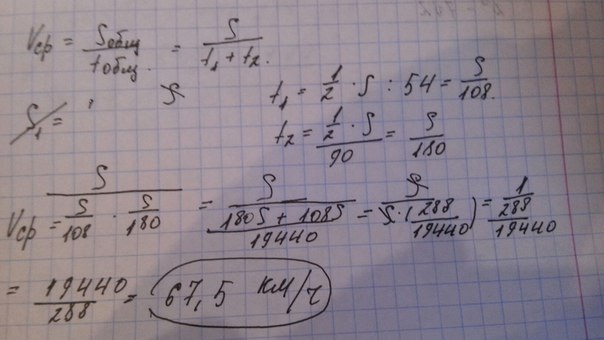 Vср = Sобщ / tобщ. = S / t₁ + t₂.
S₁ =
t₁ = 1/2 · S : 54 = S/108.
t₂ = 1/2 · S / 90 = S/180
Vср = S / S/108 · S/180 = S / 180S + 108S / 19440 = S / S · (288/19440) = 1 / 288/19440
= 19440/288 = 67,5 км/ч